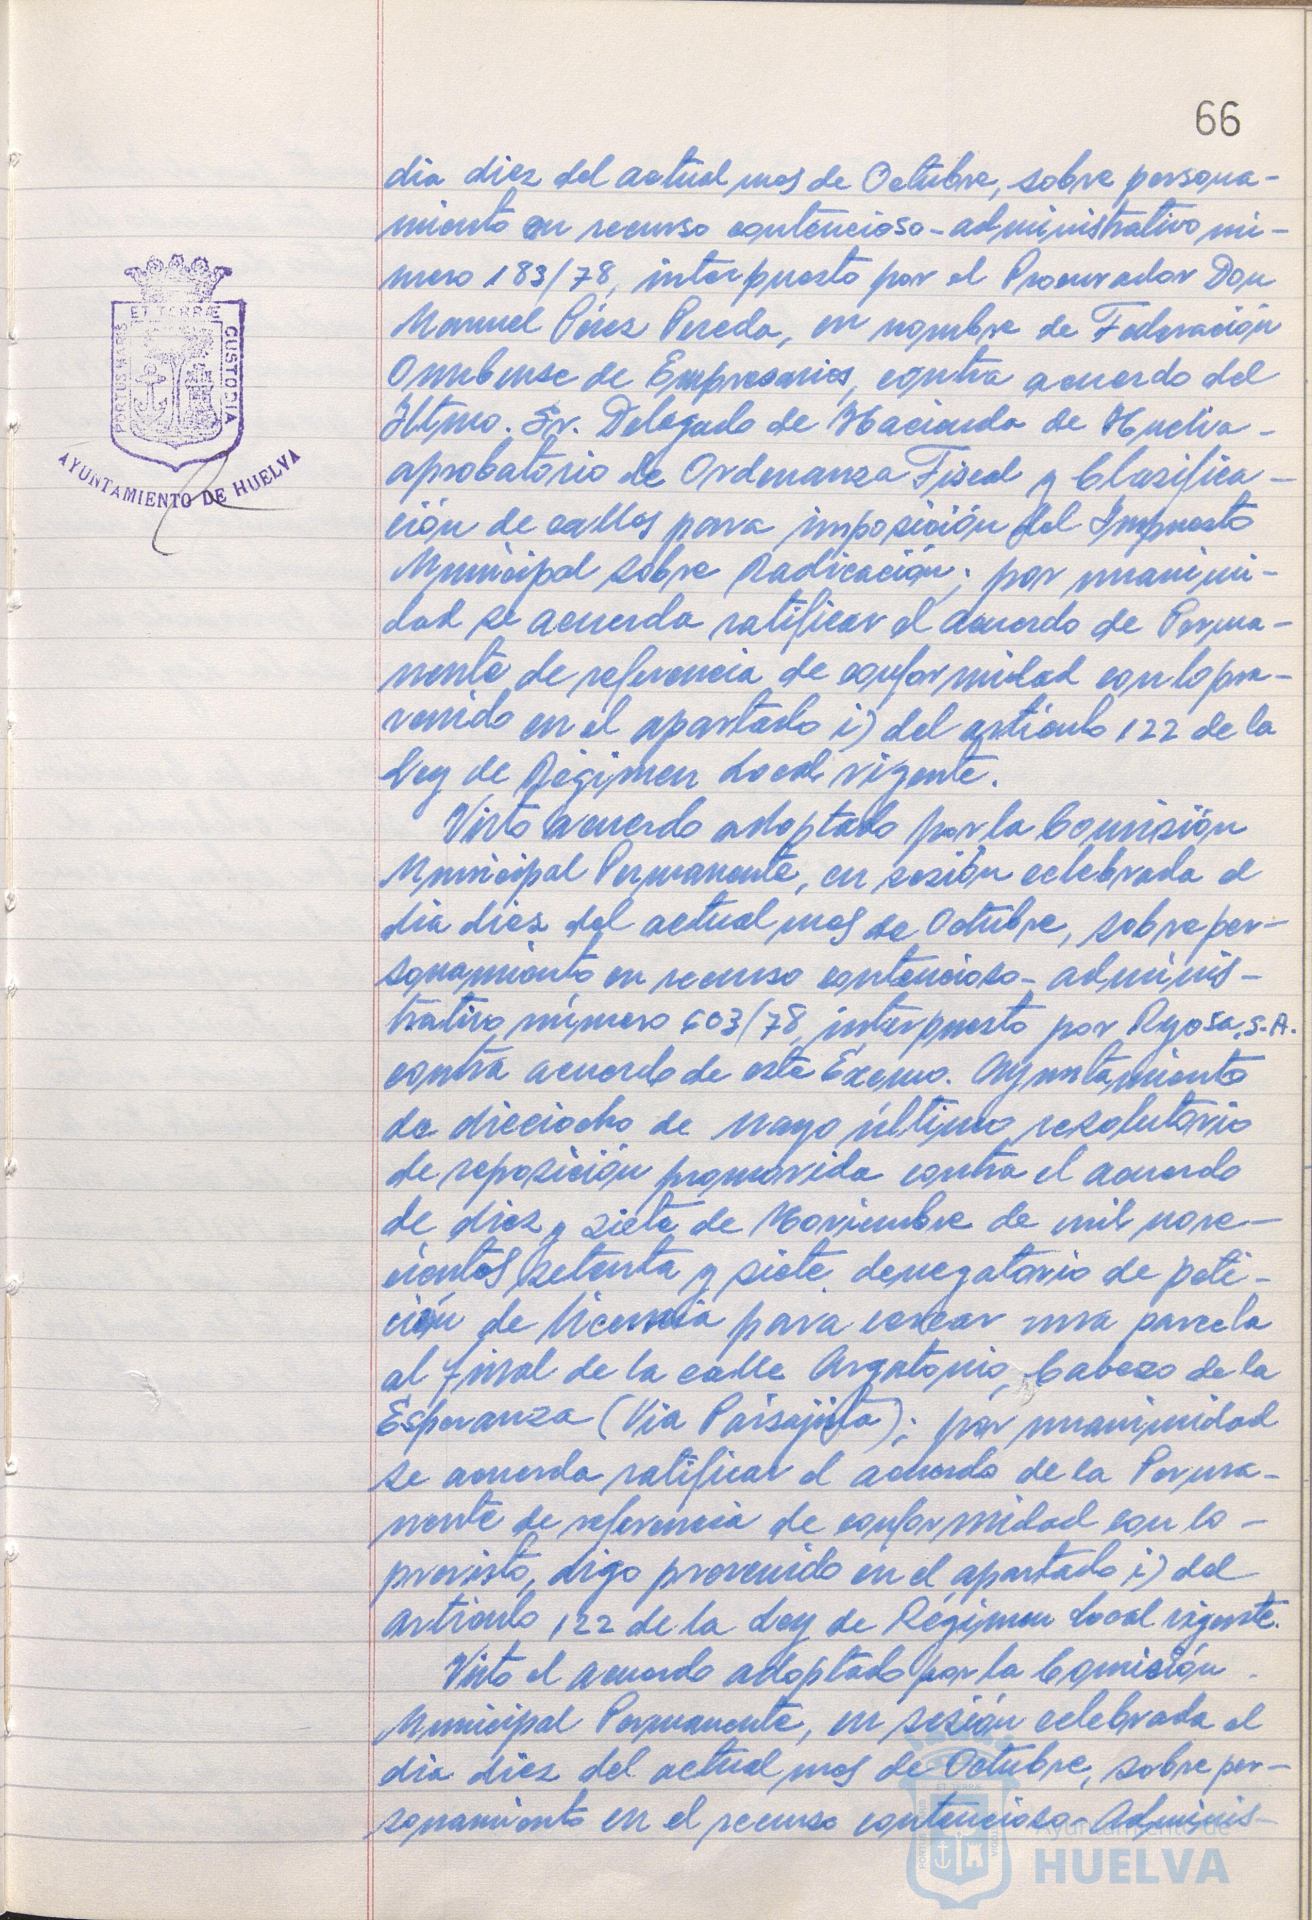 66
dia diez del actual mes de Octubre, sobre persona-
miento en recurso contencioso-administrativo nú-
mero 183/78, interpuesto por el Procurador Don
Manuel Pérez Pereda, en nombre de Federación
Onubense de Empresarios, contra acuerdo del
Iltmo. Sr. Delegado de Hacienda de Huelva -
aprobatorio de Ordenanza Fiscal y Clasifica-
ción de calles para imposición del Impuesto
Municipal sobre Radicación; por unanimi-
dad se acuerda ratificar el acuerdo de Perma-
nente de referencia de conformidad con lo pre-
venido en el apartado i) del artículo 122 de la
Ley de Régimen Local vigente.
Visto acuerdo adoptado por la Comisión
Municipal Permanente, en sesión celebrada el
dia diez del actual mes de Octubre, sobre per-
sonamiento en recurso contencioso-adminis-
trativo número 603/78, interpuesto por Ryosa, S.A.
contra acuerdo de este Excmo. Ayuntamiento
de dieciocho de mayo último resolutorio
de reposición promovida contra el acuerdo
de diez y siete de Noviembre de mil nove-
cientos setenta y siete denegatorio de peti-
ción de licencia para cercar una parcela
al final de la calle Argantonio, Cabezo de la
Esperanza (Via Paisajista); por unanimidad
se acuerda ratificar el acuerdo de la Perma-
nente de referencia de conformidad con lo -
previsto, digo prevenido en el apartado i) del
artículo 122 de la Ley de Régimen Local vigente.
Visto el acuerdo adoptado por la Comisión
Municipal Permanente, en sesión celebrada el
dia diez del actual mes de Octubre, sobre per-
sonamiento en el recurso contencioso-Adminis-
PORTUS MARIS
ET TERRÆ
CUSTODIA
AYUNTAMIENTO DE HUELVA
Ayuntamiento de
HUELVA